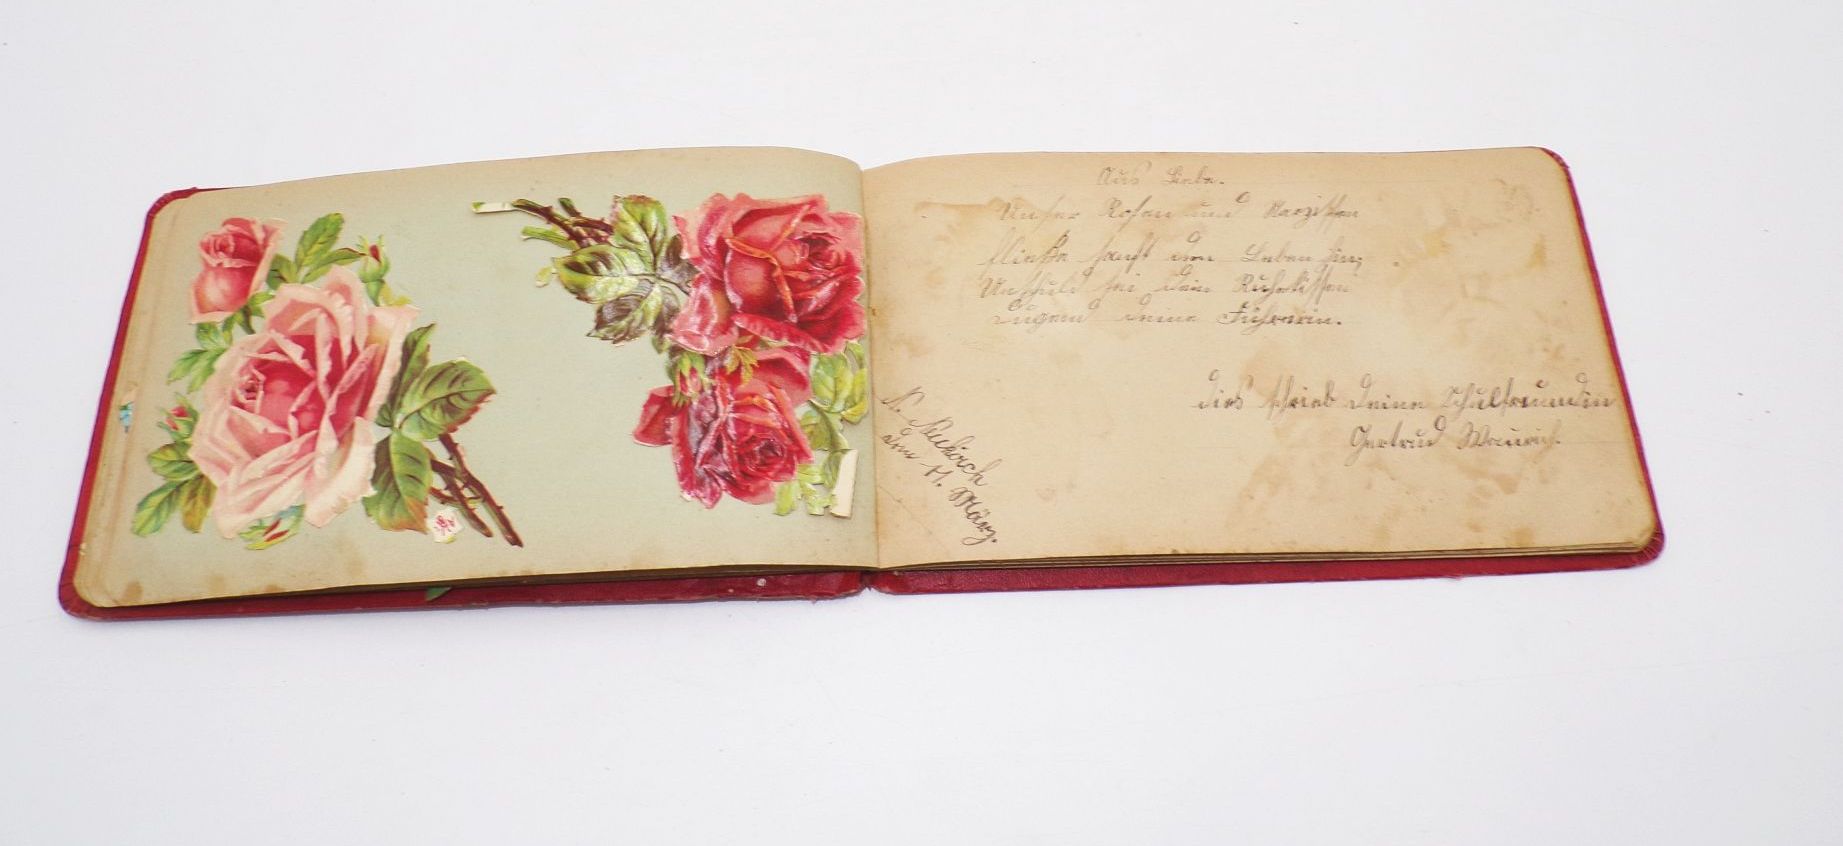 Aus Liebe.
Unter Rosen und Narzissen
fließe sanft dein Leben hin;
Unschuld sei dein Ruhekissen
Tugend deine Führerin.
dies schrieb deine Schulfreundin
Gertrud
N.
den 11. März.